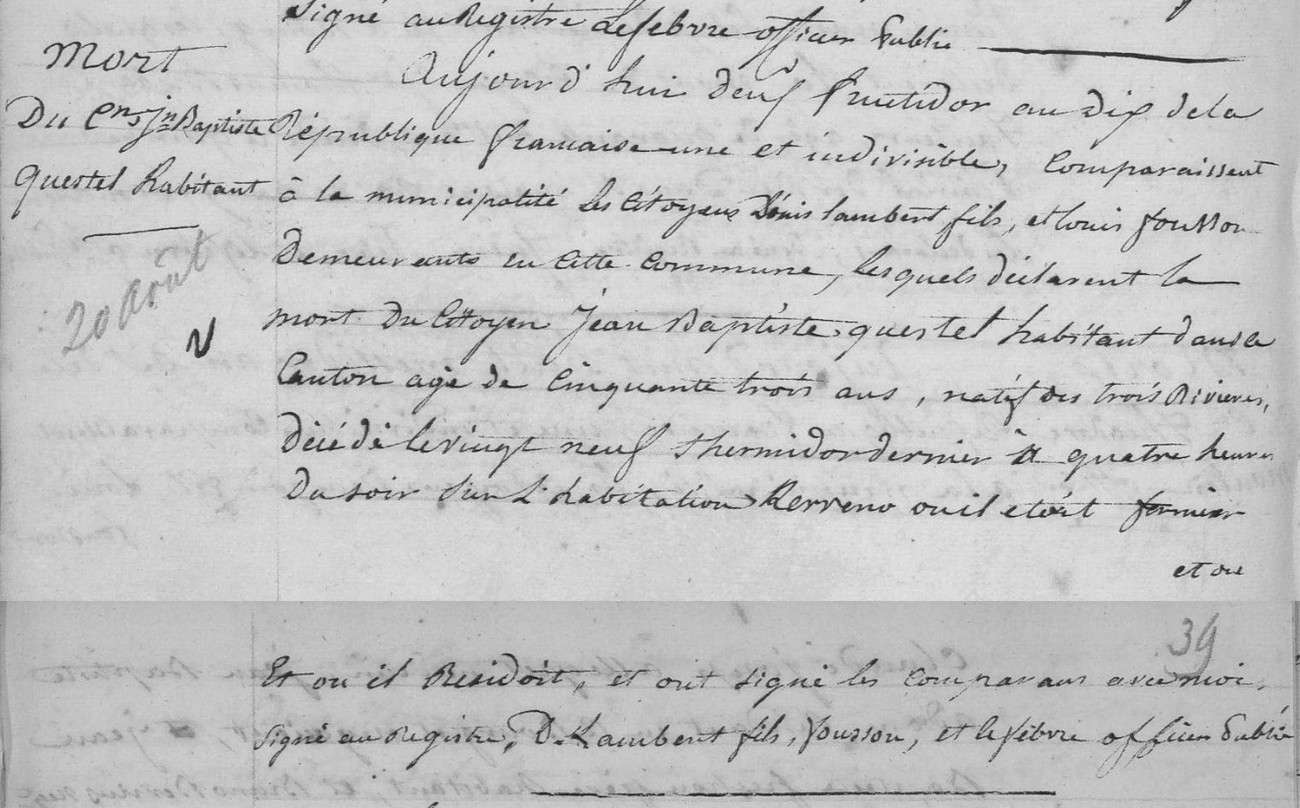 Signé au Registre Lefebvre officier Public
Mort
Du Cen Jn Baptiste
questel habitant
20 août
Aujourd'hui deux fructidor an dix de la
République francaise une et indivisible, comparaissent
à la municipalité les Citoyens Dénis Lambert fils, et Louis fousson
Demeurants en Cette Commune, lesquels déclarent la
mort Du Citoyen Jean Baptiste questel habitant dans ce
Canton agé de Cinquante trois ans, natif des trois Rivieres,
Décédé le vingt neuf Thermidor dernier à quatre heures
Du soir Sur L'habitation Kerreno ou il etoit fermier
et ou
39
Et ou il Residoit, et ont signé les comparans avec moi.
signé au Registre, D. Lambert fils, fousson, et lefebvre officier Public